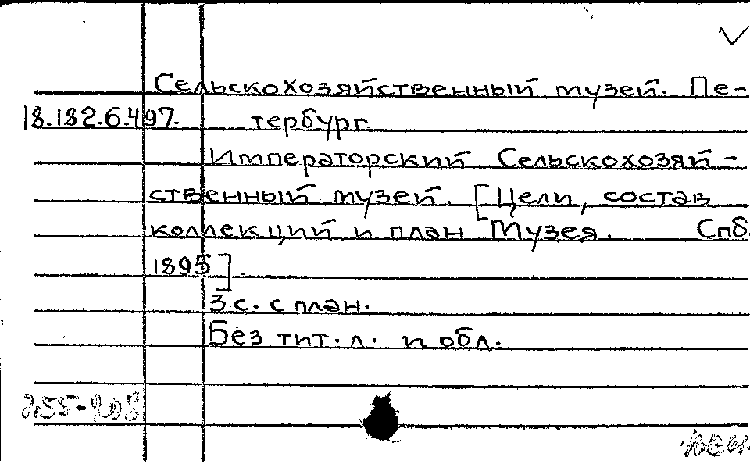 Сельскохозяйственный музей. Пе-
18.182.6.497. тербург.
Императорский Сельскохозяй-
ственный музей. [Цели, состав
коллекций и план Музея. Спб.
1895].
3 с. с план.
Без тит. л. и обл.